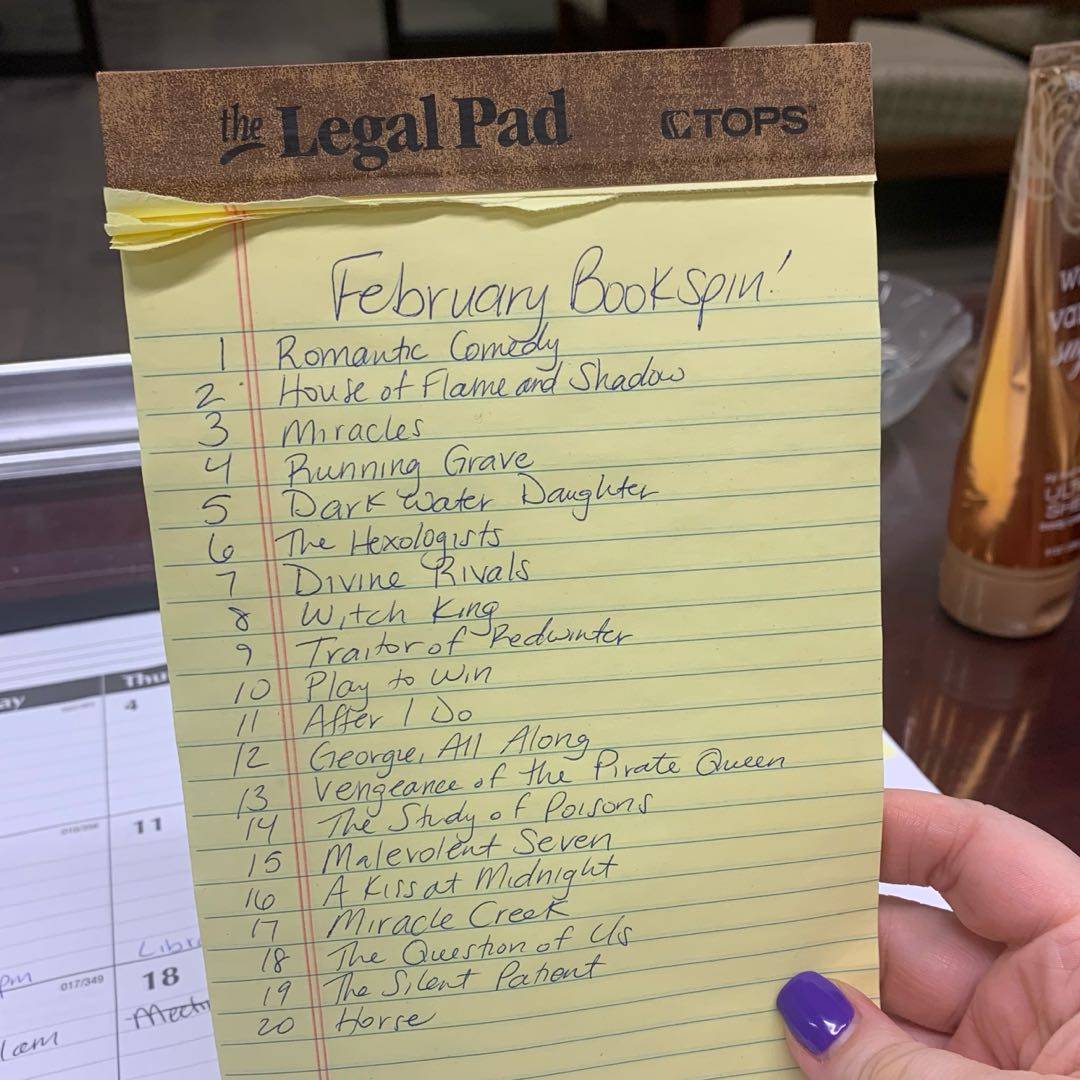 the Legal Pad TOPS™
February Bookspin!
1 Romantic Comedy
2 House of Flame and Shadow
3 Miracles
4 Running Grave
5 Dark Water Daughter
6 The Hexologists
7 Divine Rivals
8 Witch King
9 Traitor of Redwinter
10 Play to Win
11 After I Do
12 Georgie, All Along
13 Vengeance of the Pirate Queen
14 The Study of Poisons
15 Malevolent Seven
16 A Kiss at Midnight
17 Miracle Creek
18 The Question of Us
19 The Silent Patient
20 Horse
Thu
4
11
pm
017/349
18
1am